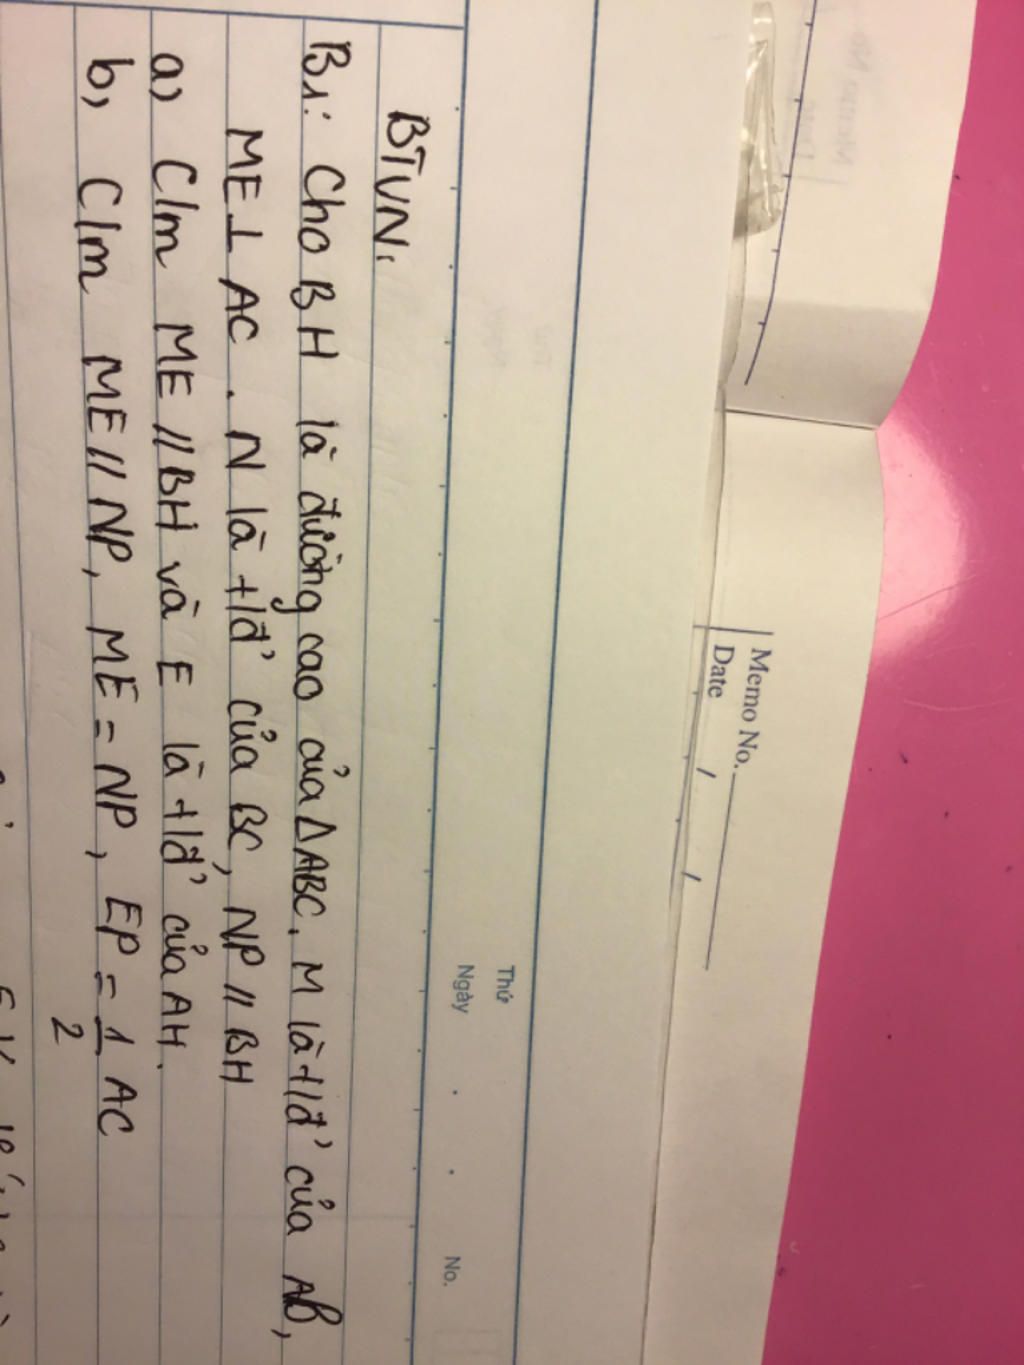 Memo No.
Date / /
Thứ
Ngày . . No.
BTVN:
B1: Cho BH là đường cao của Δ ABC, M là t/đ' của AB,
ME ⊥ AC . N là t/đ' của BC, NP // BH
a) C/m ME // BH và E là t/đ' của AH.
b) C/m ME // NP, ME = NP, EP = 1/2 AC